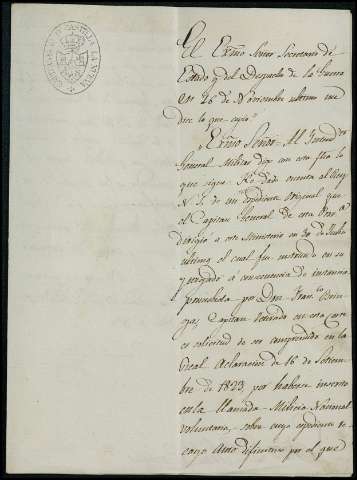 CAPITANIA G. DE CASTILLA LA NUEVA
El Exmo Señor Secretario de
Estado y del Despacho de la Guerra
en 26 de Noviembre ultimo me
dice lo que copio
"Exmo Señor: Al Intend.te
General Militar digo con esta fha lo
que sigue. He dado cuenta al Rey
N. S. de un espediente original que
el Capitan General de esta Prov.a
dirigió a este Ministerio en 30 de Julio
ultimo, el cual fue instruido en su
juzgado a consecuencia de instancia
promovida por Don Fran.co
Capitan retirado en esta Corte
en solicitud de ser comprendido en la
Real Aclaracion de 16 de Setiem-
bre de 1823, por haberse inscrito
en la llamada Milicia Nacional
voluntaria, sobre cuyo espediente re-
cayo Auto difinitivo por el que